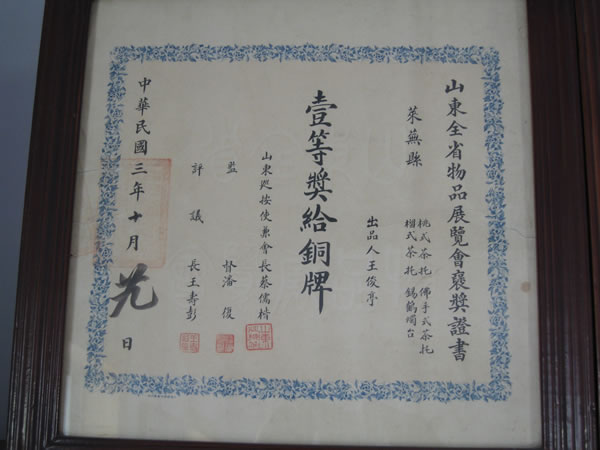 山東全省物品展覽會褒獎證書
萊蕪縣
桃式茶托 佛手式茶托
榴式茶托 錫鶴燭台
出品人王俊亭
壹等獎給銅牌
山東巡按使兼會長蔡儒楷
監督潘復
評議長王壽彭
中華民國三年十月 日